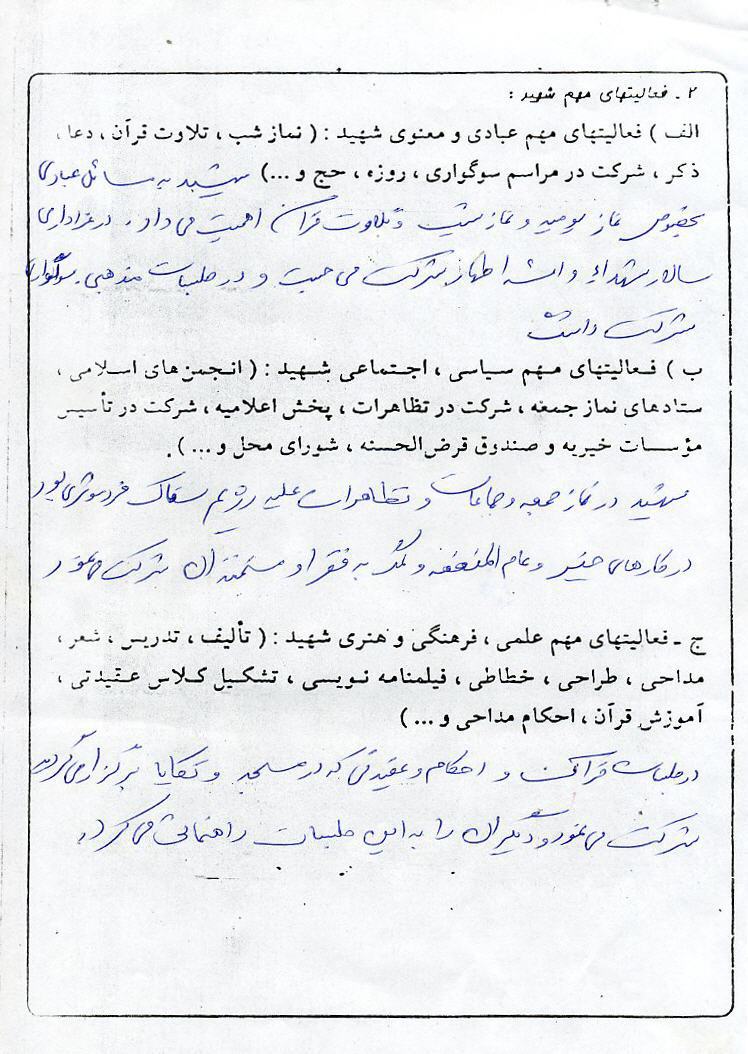 ۲ ـ فعالیتهای مهم شهید :
الف ) فعالیتهای مهم عبادی و معنوی شهید : ( نماز شب ، تلاوت قرآن ، دعا ،
ذکر ، شرکت در مراسم سوگواری ، روزه ، حج و ...) شهید به مسائل عبادی
بخصوص نماز یومیه و نماز شب و تلاوت قرآن اهمیت می داد . در عزاداری
سالار شهداء و ائمه اطهار شرکت می جست و در جلسات مذهبی . سوگواری
شرکت داشت
ب ) فعالیتهای مهم سیاسی ، اجتماعی شهید : ( انجمن های اسلامی ،
ستادهای نماز جمعه ، شرکت در تظاهرات ، پخش اعلامیه ، شرکت در تأسیس
مؤسسات خیریه و صندوق قرض الحسنه ، شورای محل و ... ) .
شهید در نماز جمعه و جماعات و تظاهرات علیه رژیم سفاک
در کارهای خیر و عام المنفعه و کمک به فقرا و مستمندان شرکت می نمود
ج ـ فعالیتهای مهم علمی ، فرهنگی و هنری شهید : ( تألیف ، تدریس ، شعر ،
مداحی ، طراحی ، خطاطی ، فیلمنامه نویسی ، تشکیل کلاس عقیدتی ،
آموزش قرآن ، احکام مداحی و ... )
در جلسات قرآن و احکام و عقیدتی که در مسجد و تکایا برگزار می گردید
شرکت می نمود و دیگران را به این جلسات راهنمائی می کرد .